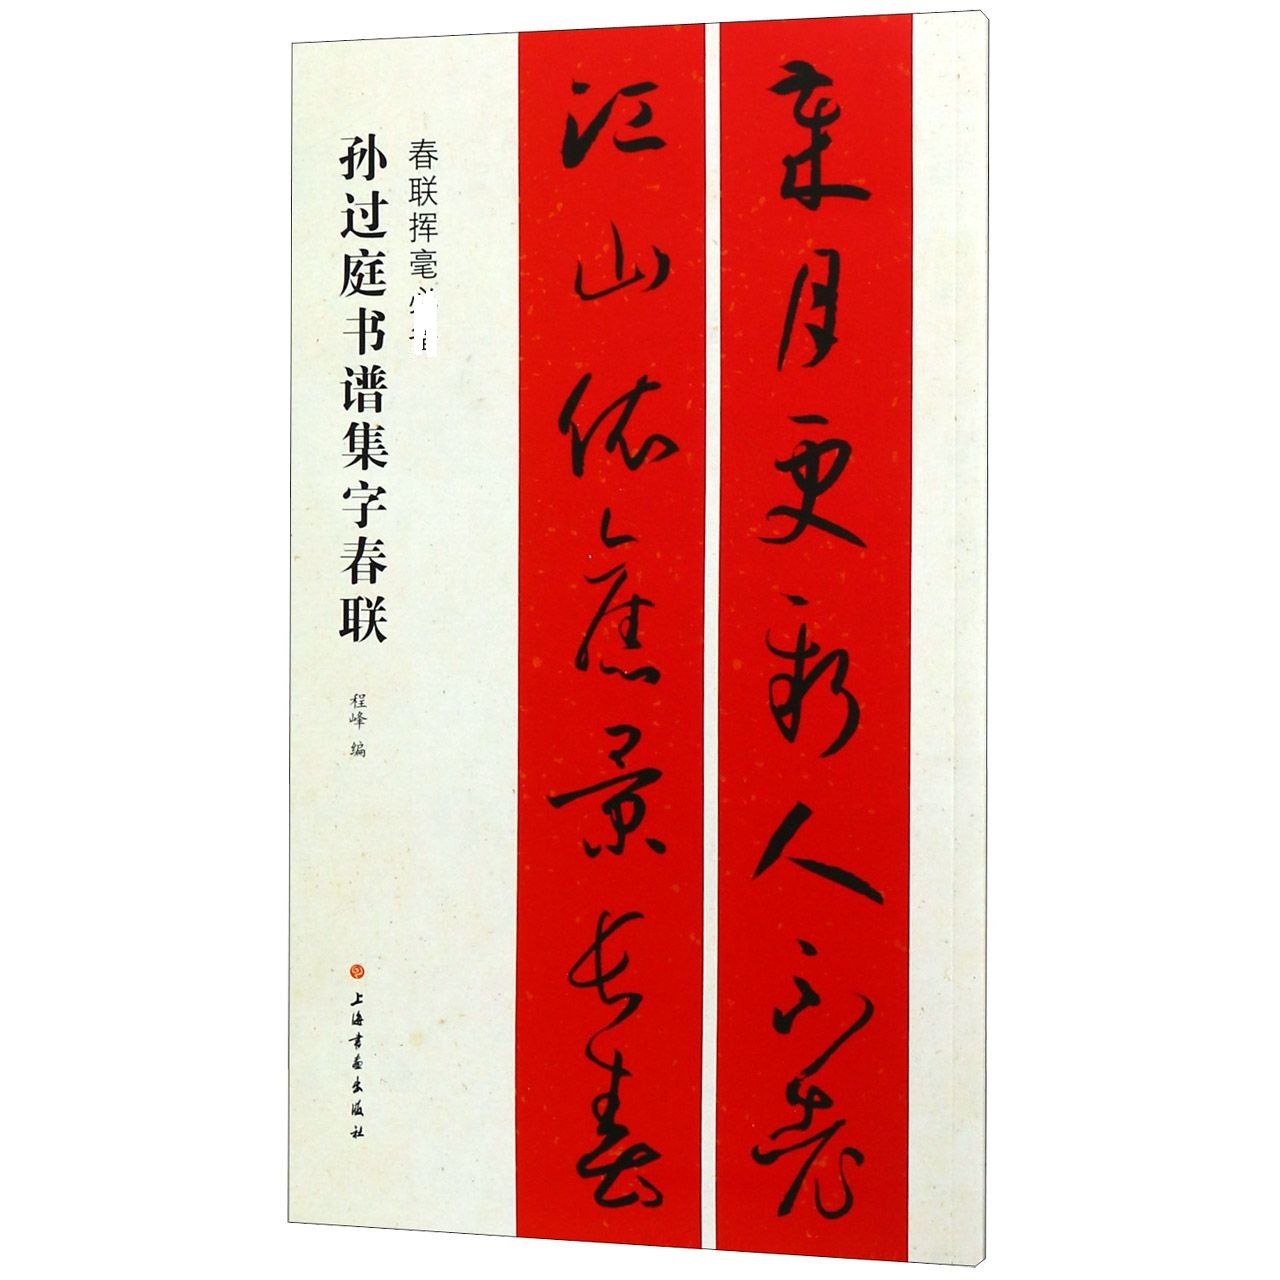 歲月更新人不老
江山依舊景長春
春联挥毫
孙过庭书谱集字春联
程峰 编
上海书画出版社